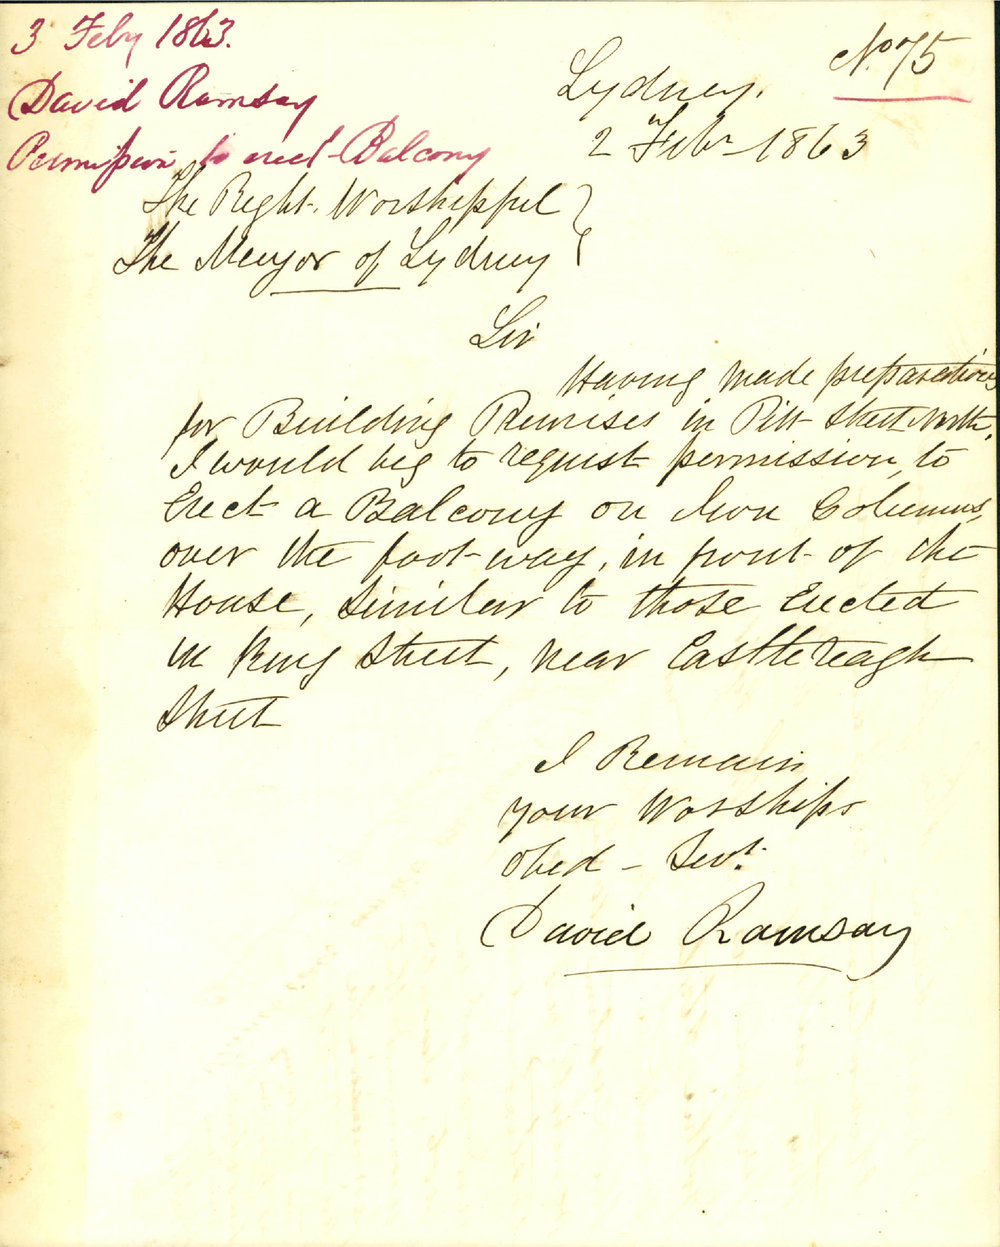 3 Feby 1863.
David Ramsay
Permission to erect Balcony
No 75
Sydney.
2n Feby 1863
The Right Worshippful
The Meayor of Sydney
Sir
Having made preparations
for Building Premises in Pitt Street North,
I would beg to request permission, to
Erect a Balcony on Iron Columns,
over the foot-way, in front of the
House, Similar to those Erected
in King Street, near Castlereagh
Street
I Remain
your Worships
Obed - Servt.
David Ramsay